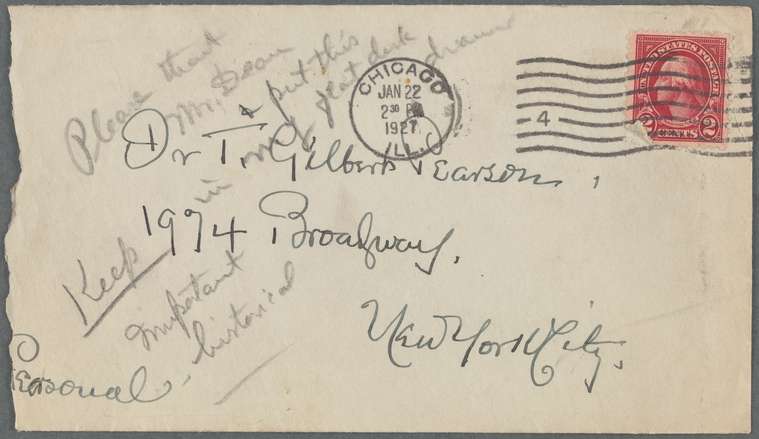 Please thank
Mr. Dean
& put this
in my flat desk
drawer
CHICAGO
JAN 22
2 30 PM
1927
ILL.
4
UNITED STATES POSTAGE
2 CENTS 2
Dr T. Gilbert Pearson,
1974 Broadway,
New York City.
Keep
Important
historical
Personal